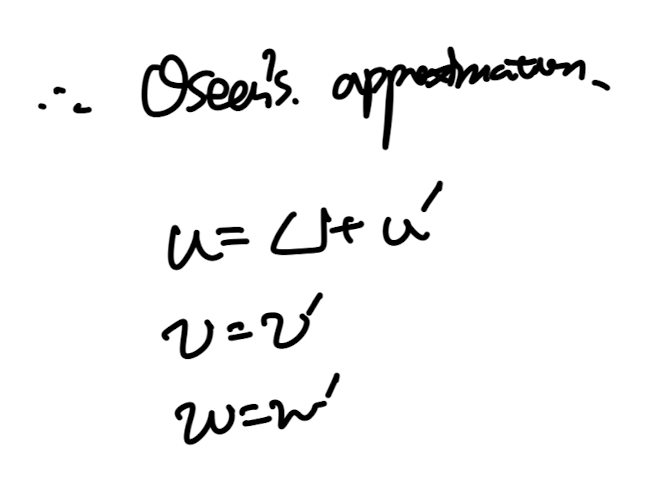 ∴ Oseen's. approximation.
u = U + u'
v = v'
w = w'